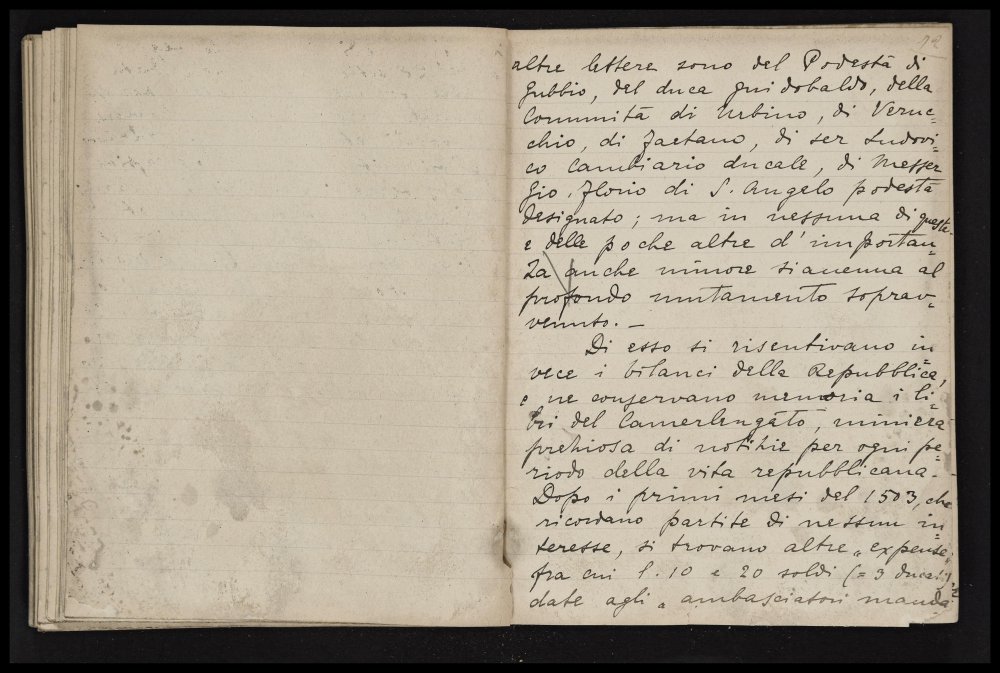 12
altre lettere sono del Podestà di
Gubbio, del duca Guidobaldo, della
Comunità di Urbino, di Veruc=
chio, di Gaetano, di ser Ludovi=
co Cambiario ducale, di Messer
Gio. Florio di S. Angelo podestà
designato; ma in nessuna di queste
e delle poche altre d'importan=
za anche minore si accenna al
profondo mutamento soprav=
venuto. —
Di esso si risentivano in=
vece i bilanci della Repubblica,
e ne conservano memoria i li=
bri del Camerlengato, miniera
preziosa di notizie per ogni pe=
riodo della vita repubblicana.
Dopo i primi mesi del 1503, che
ricordano partite di nessun in=
teresse, si trovano altre „expense„
fra cui l. 10 e 20 soldi (= 3 ducati)
date agli „ambasciatori manda